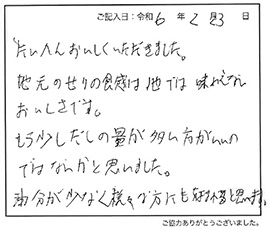 ご記入日：令和 6 年 2 月 23 日
たいへんおいしくいただきました。
地元のせりの食感は他では味わえない
おいしさです。
もう少しだしの量が多い方がいいの
ではないかと思いました。
油分が少なく様々な方にも好かると思います。
ご協力ありがとうございました。